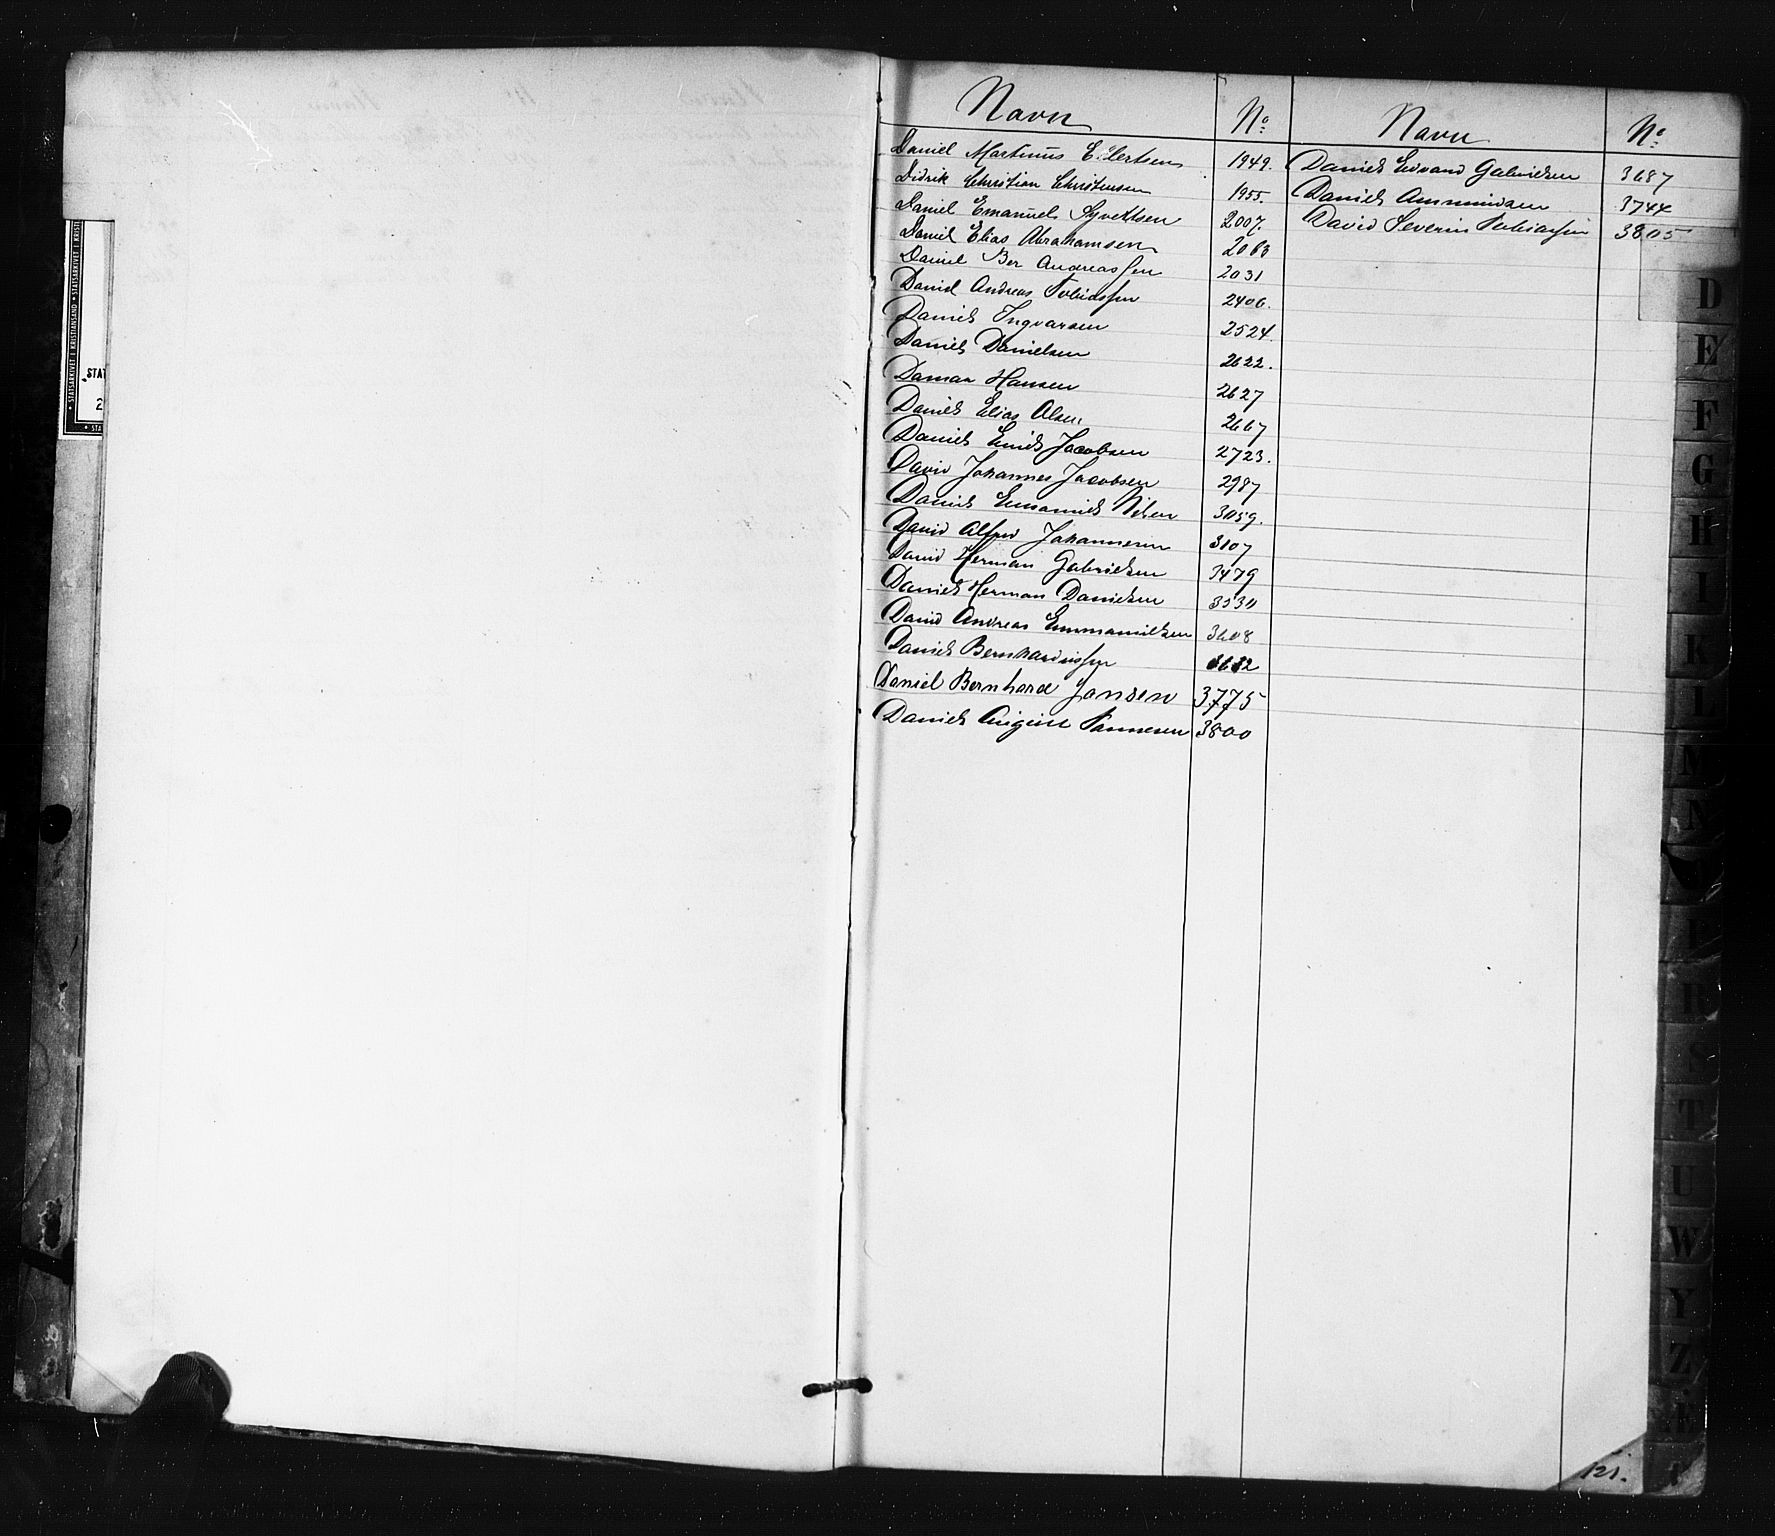 Navn No Navn No
Daniel Martinus Eilertsen 1949. Daniel Edvard Gabrielsen 3687
Didrik Christian Christensen 1955. Daniel Ammundsen 3744
Daniel Emanuel Syvertsen 2007. David Severin Tobiassen 3805
Daniel Elias Abrahamsen 2063
Daniel Ber Andreassen 2031
Daniel Andreas Tobiassen 2406.
Daniel Ingvarsen 2524
Daniel Danielsen 2622.
Hansen 2627
Daniel Elias Olsen 2667
Daniel Emil Jacobsen 2723.
David Johannes Jacobsen 2987
Daniel Emanuel Nilsen 3059.
David Alfred Johannesen 3107
David Herman Gabrielsen 3479
Daniel Herman Danielsen 3530
David Andreas Emmanuelsen 3608
Daniel Bernhardussen 3632
Daniel Bernhard Jansen 3775
Daniel August 3800
D
E
F
G
H
I
K
L
M
N
P
R
S
T
U
W
Y
Z
Æ
121.
STATSARKIVET I KRISTIANSAND
STAT
2